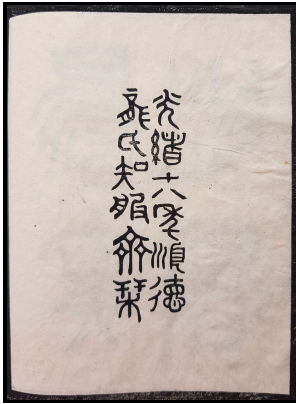 光緒十六年順德
龍氏知服齋栞